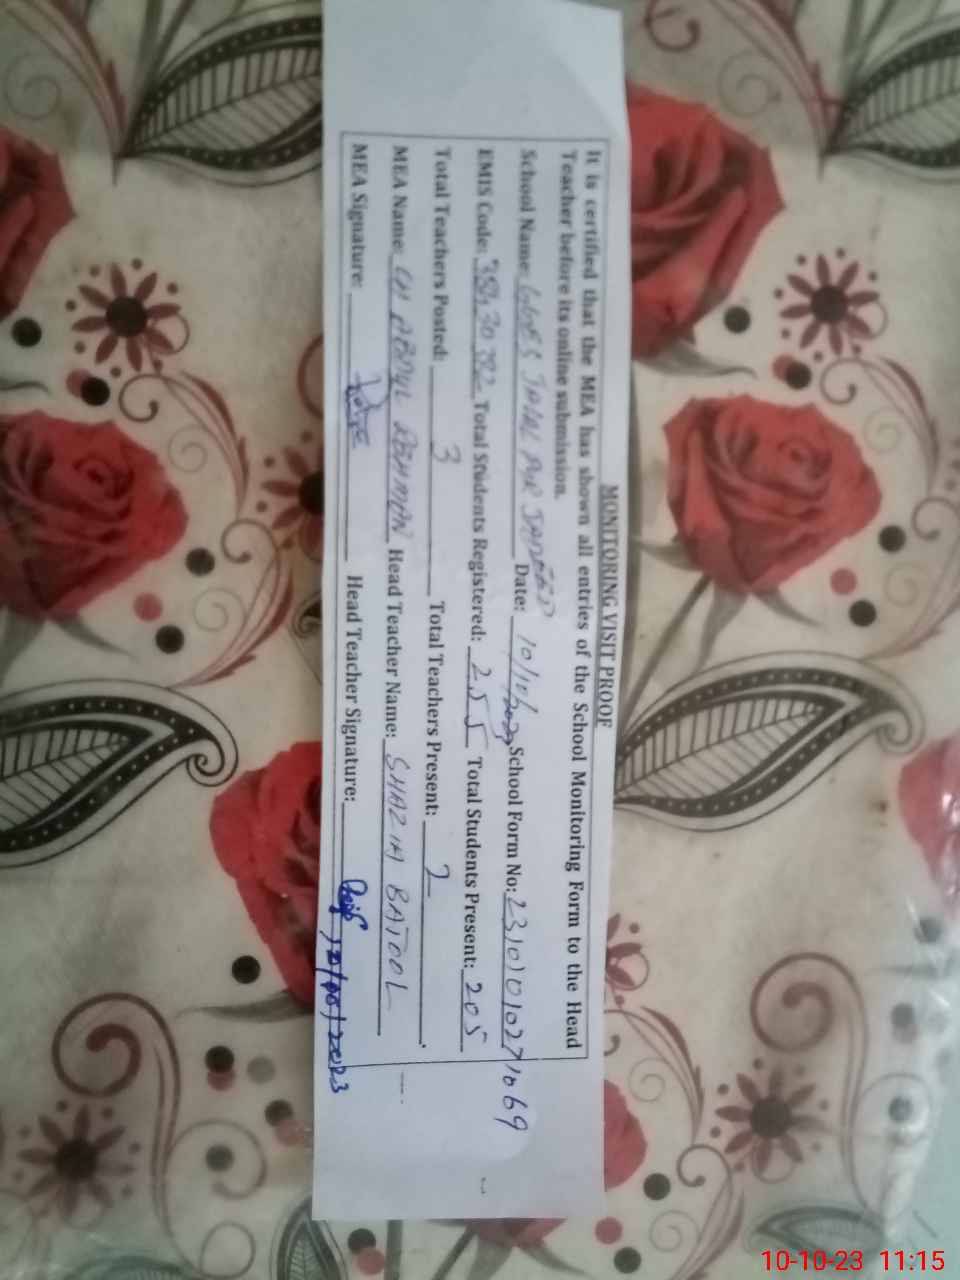 MONITORING VISIT PROOF
It is certified that the MEA has shown all entries of the School Monitoring Form to the Head
Teacher before its online submission.
School Name: JALAL PUR Date: 10/10/2023 School Form No: 23101010271069
EMIS Code: Total Students Registered: 255 Total Students Present: 205
Total Teachers Posted: 3 Total Teachers Present: 2
MEA Name: CH ABDUL REHMAN Head Teacher Name: SHAZIA BATOOL
MEA Signature: Head Teacher Signature: 10/10/2023
10-10-23 11:15